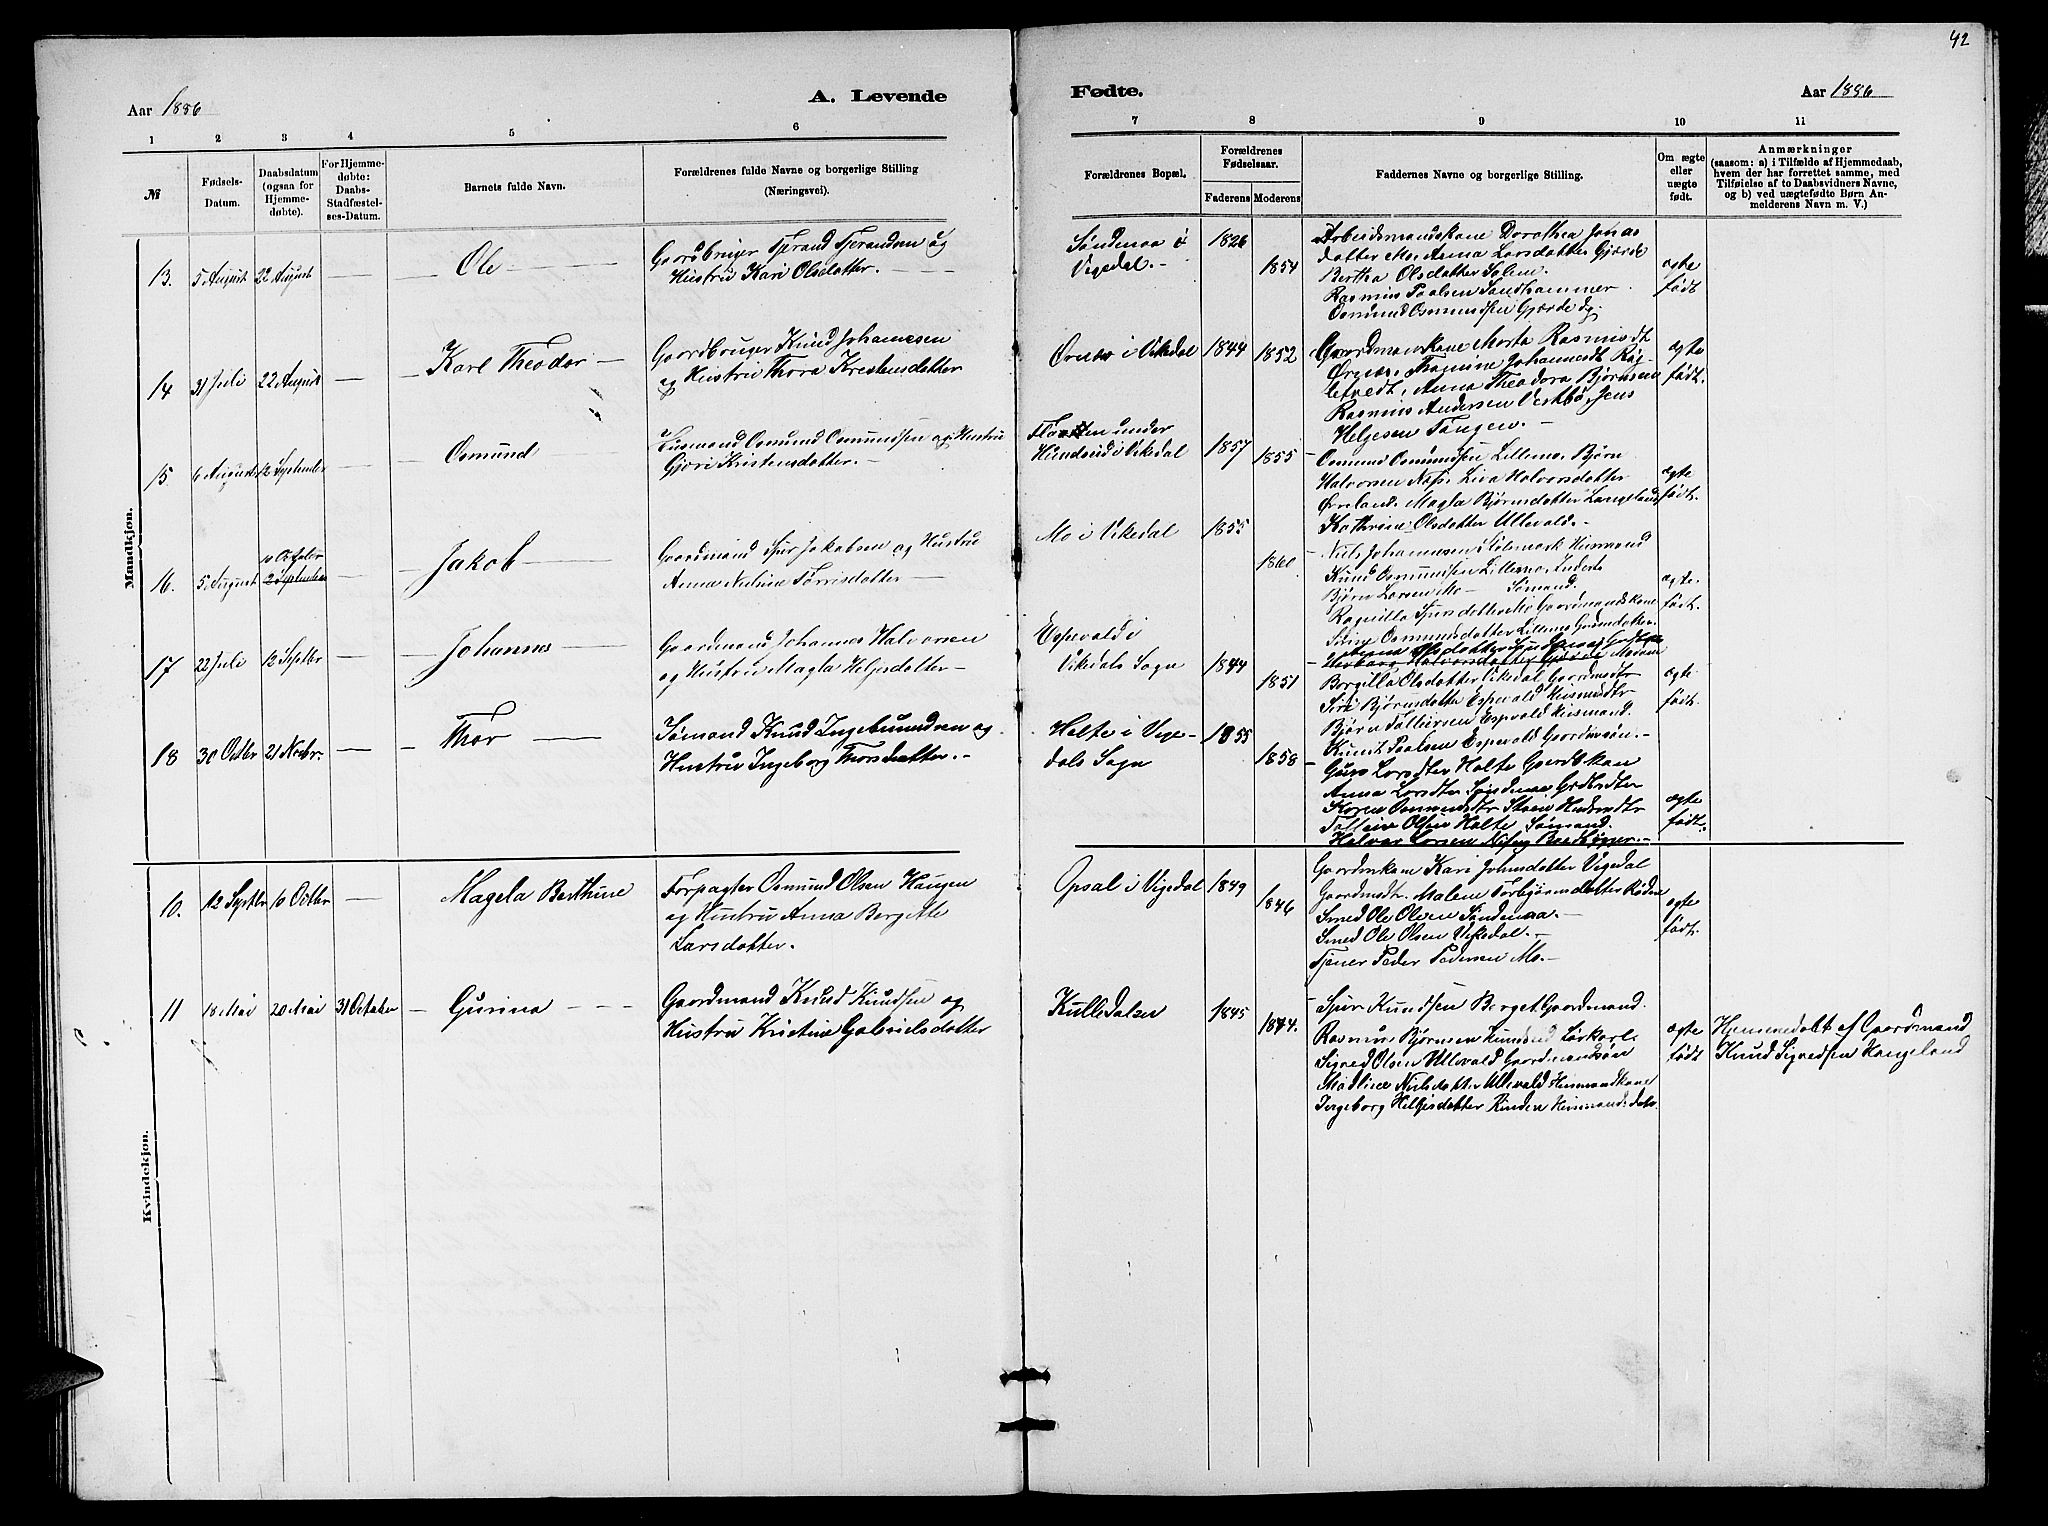 42
Aar 1886
A. Levende
Fødte.
Aar 1886
1 2 3 4 5 6 7 8 9 10 11
№
Fødsels-
Datum.
Daabsdatum
(ogsaa for
Hjemme-
døbte).
For Hjemme-
døbte:
Daabs-
Stadfæstel-
ses-Datum.
Barnets fulde Navn.
Forældrenes fulde Navne og borgerlige Stilling
(Næringsvei).
Forældrenes Bopæl.
Forældrenes
Fødselsaar.
Faderens Moderens
Faddernes Navne og borgerlige Stilling.
Om ægte
eller
uægte
født.
Anmærkninger
(saasom: a) i Tilfælde af Hjemmedaab,
hvem der har forrettet samme, med
Tilføielse af to Daabsvidners Navne,
og b) ved uægtefødte Børn An-
melderens Navn m. V.)
Mandkjøn.
13. 5 August 22 August — Ole
Gaardbruger Tjerand Tjerandsen og
Hustru Kari Olsdatter.
Søndenaa i
Vigedal.
1826 1854
Arbeidsmandskone Dorothea Jonas
datter Mo, Anna Larsdatter Gjærde
Bertha Olsdatter Solem.
Rasmus Paalsen Sandhammer
Osmund Osmundsen Gjærde
ægte
født
14 31 Juli 22 August — Karl Theodor
Gaardbruger Knud Johannesen
og Hustru Thora Kristensdatter
i Vikedal 1844 1852
Gaardmandskone Marta Rasmusdt
Johannesdt
Anna Theodora Bjørnsen
Rasmus Andersen Vestbø, Jens
Helgesen Tangen.
ægte
født.
15. 6 August 12 September — Osmund
Husmand Osmund Osmundsen og Hustru
Gjøri Kristensdatter.
under
i Vikedal 1857 1855
Osmund Osmundsen Lillemo, Bjørn
Halvorsen Næs, Liva Halvorsdatter
Magla Bjørnsdatter Langeland
Kathrine Olsdatter Ullevald.
ægte
født.
16. 5 August 10 October
2 September — Jakob
Gaardmand Sjur Jakobsen og Hustru
Anna Nilsine Tørrisdatter
Mo i Vikedal 1855 1860
Niels Johannesen Husmand
Knud Osmundsen Lillemo,
Bjørn Larsen Mo Sømand.
Ragnilla Sjursdatter Mo Gaardmandskone
Osmundsdatter Lillemo
ægte
født.
17 22 Juli 12 Septbr — Johannes
Gaardmand Johannes Halvorsen
og Hustru Magla Helgesdatter
Espevald i
Vikedals Sogn 1844 1851
Halvorsdatter Gjærde
Borgilla Olsdatter Vikedal Gaardmdtr
Siri Bjørnsdatter Espevald Husmdtr
Bjørn Espevald Husmand.
Knut Paalsen Espevald
ægte
født.
18 30 Octbr 21 Novbr. — Thor
Sømand Knud Ingebrundsen og
Hustru Ingeborg Thorsdatter.
Halte i Vige-
dals Sogn 1855 1858
Guro Larsdtr Halte Gaardmkone
Anna Larsdtr Søndenaa
Karen Osmundsdtr
Olsen Halte Sømand.
Halvor Larsen
ægte
født.
Kvindekjøn.
10. 12 Septbr 10 Octbr — Magela Berthine
Forpagter Osmund Olsen Haugen
og Hustru Anna Bergitte
Larsdatter.
Opsal i Vigedal 1849 1846
Gaardmkone Kari Johnsdatter Vigedal
Gaardmdtr. Malene Torbjørnsdatter
Smed Ole Olsen Søndenaa.
Smed Ole Olsen Vikedal.
Tjener Peder Pedersen Mo.
ægte
født.
11 18 Mai 20 Mai 31 October Gurina
Gaardmand Knud Knudsen og
Hustru Kristine Gabrielsdatter
Kulledalen 1845 1844.
Sjur Knudsen Berget Gaardmand.
Rasmus Bjørnsen
Sigved Olsen Ullevald Gaardmandssøn
Nielsdatter Ullevald Husmandskone
Ingeborg Helgesdatter
ægte
født
Hjemmedøbt af Gaardmand
Knud Sigvedsen Haugeland